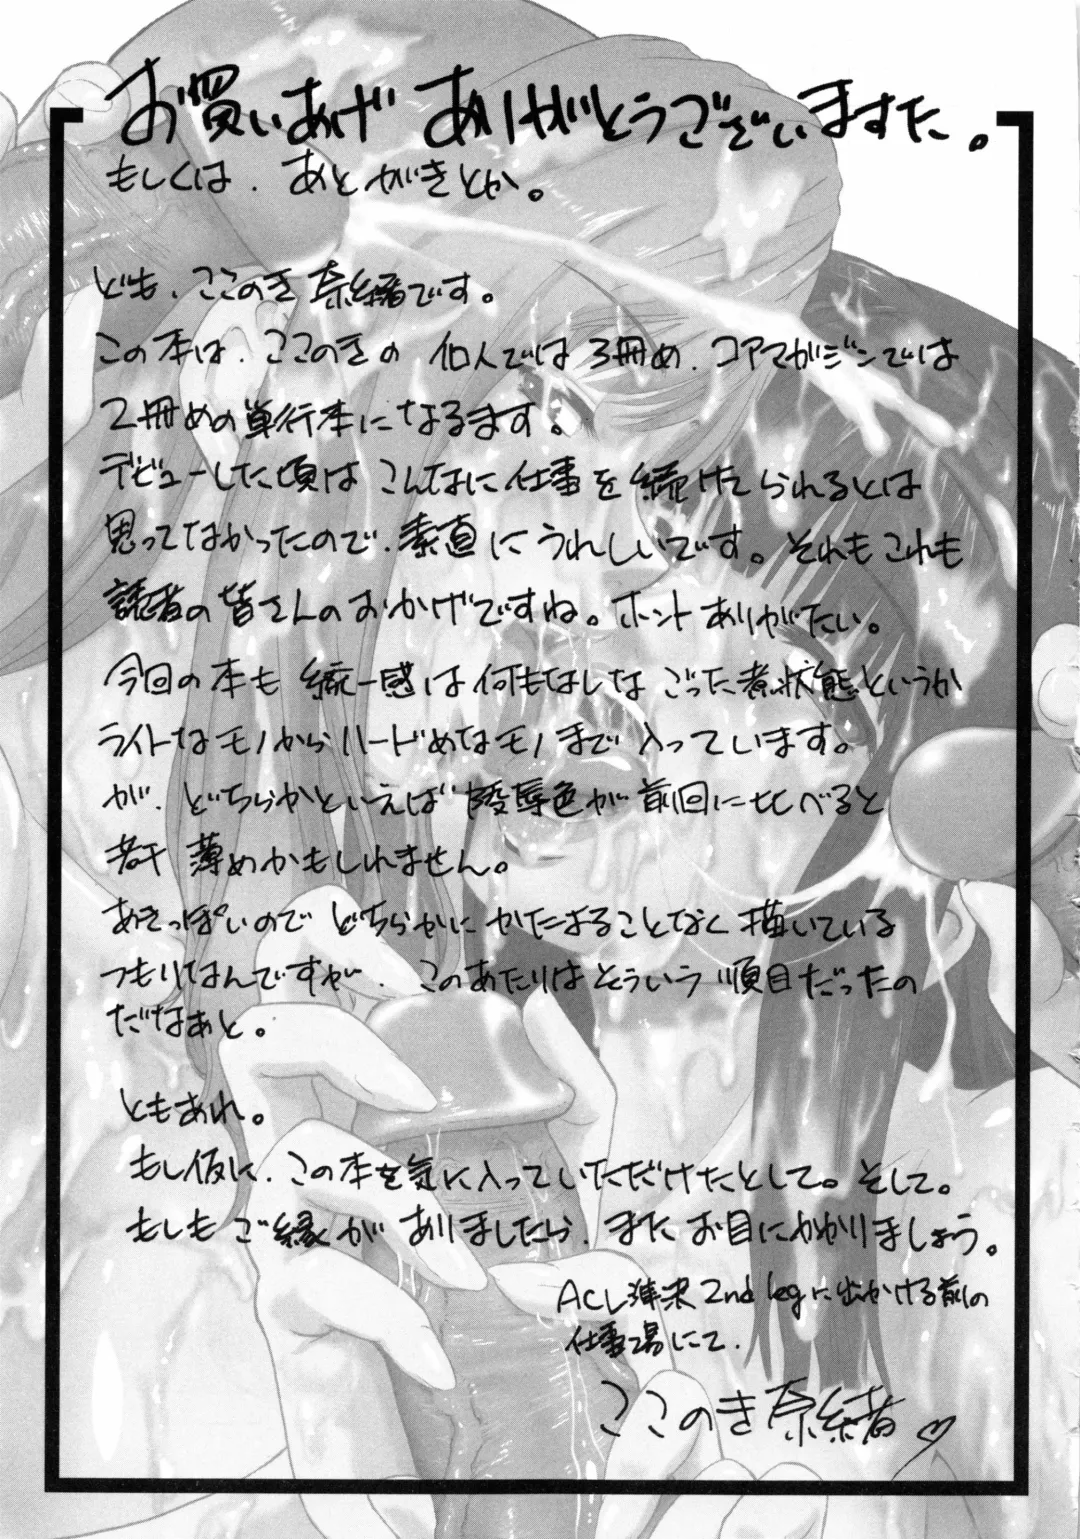 お買いあげ ありがとうございますた。
もしくは、あとがきとか。
ども、ここのき奈緒です。
この本は、ここのきの個人では3冊め、コアマガジンでは
2冊めの単行本になるます。
デビューした頃はこんなに仕事を続けてられるとは
思ってなかったので、素直にうれしいです。それもこれも
読者の皆さんのおかげですね。ホントありがたい。
今回の本も統一感は何もなしなごった煮状態というか
ライトなモノからハードめなモノまで入っています。
が、どちらかといえば陵辱色が前回に比べると
若干薄めかもしれません。
あきっぽいので どちらかにかたまることなく描いている
つもりなんですが、このあたりはそういう順目だったの
だなあと。
ともあれ。
もし仮に、この本を気に入っていただけたとして。そして。
もしもご縁がありましたら、またお目にかかりましょう。
ACL準決2nd legに出かける前の
仕事場にて。
ここのき奈緒♡